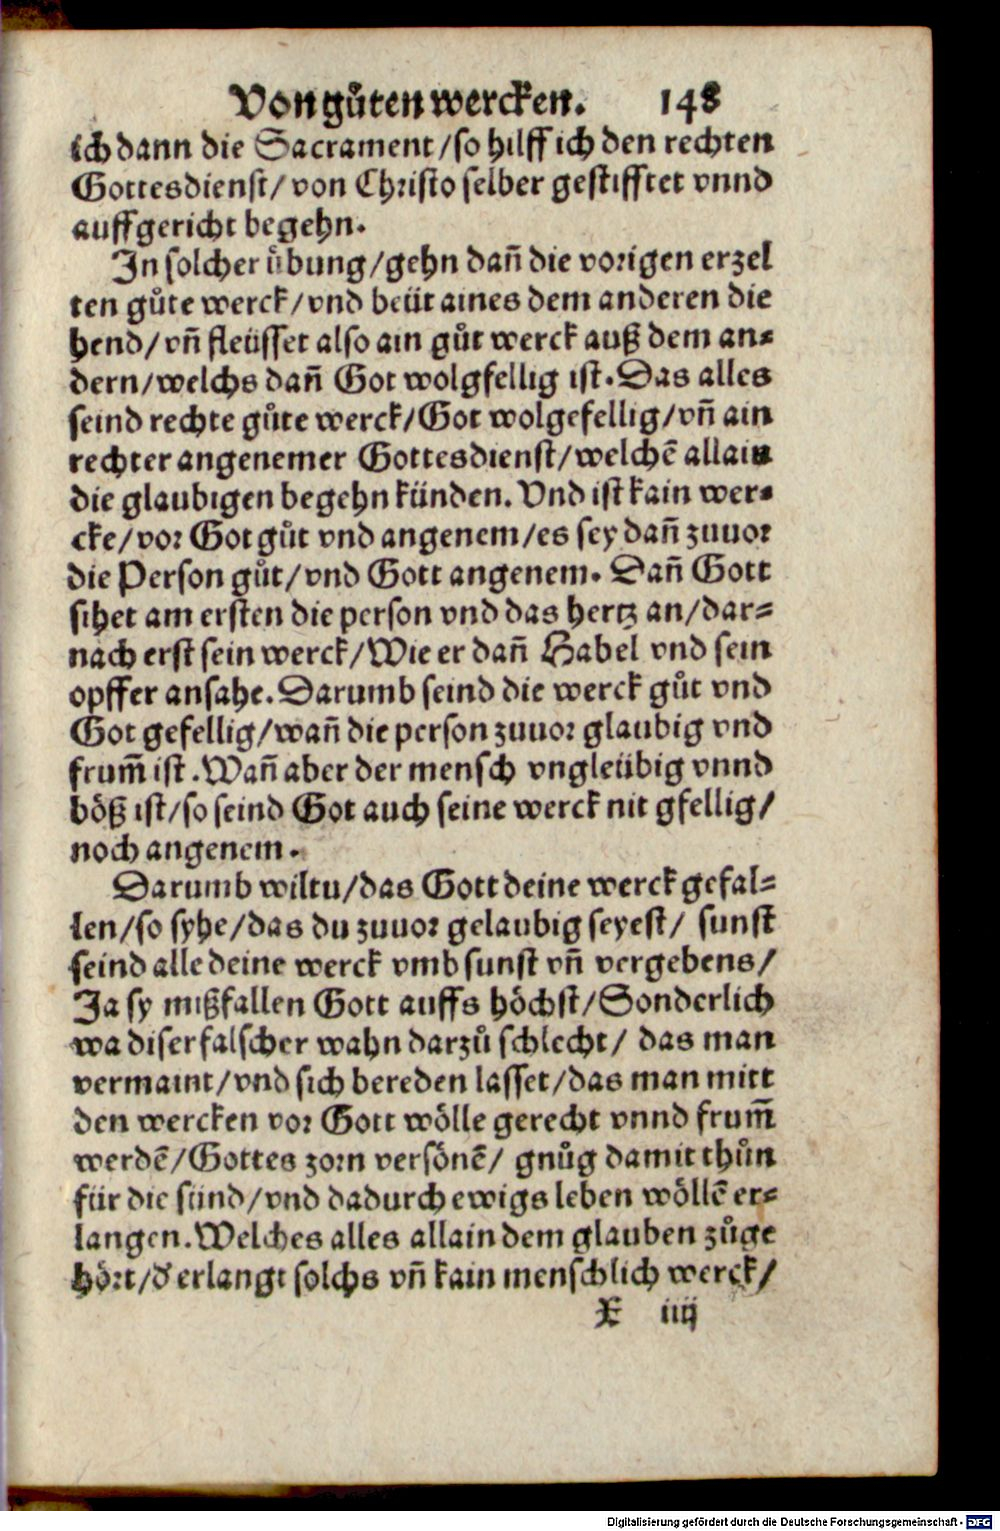 Von gůten wercken. 148
ich dann die Sacrament/so hilff ich den rechten
Gottesdienst/von Christo selber gestifftet vnnd
auffgericht begehn.
In solcher übung/gehn dañ die vorigen erzel
ten gůte werck/vnd beüt aines dem anderen die
hend/vñ fleüsset also ain gůt werck auß dem an⸗
dern/welchs dañ Got wolgfellig ist. Das alles
seind rechte gůte werck/Got wolgefellig/vñ ain
rechter angenemer Gottesdienst/welchẽ allain
die glaubigen begehn künden. Vnd ist kain wer⸗
cke/vor Got gůt vnd angenem/es sey dañ zuuor
die Person gůt/vnd Gott angenem. Dañ Gott
sihet am ersten die person vnd das hertz an/dar⸗
nach erst sein werck/Wie er dañ Habel vnd sein
opffer ansahe. Darumb seind die werck gůt vnd
Got gefellig/wañ die person zuuor glaubig vnd
frum̃ ist. Wañ aber der mensch vngleübig vnnd
böß ist/so seind Got auch seine werck nit gfellig/
noch angenem.
Darumb wiltu/das Gott deine werck gefal⸗
len/so syhe/das du zuuor gelaubig seyest/ sunst
seind alle deine werck vmb sunst vñ vergebens/
Ja sy mißfallen Gott auffs höchst/Sonderlich
wa diser falscher wahn darzů schlecht/ das man
vermaint/vnd sich bereden lasset/das man mitt
den wercken vor Gott wölle gerecht vnnd frum̃
werdẽ/Gottes zorn versönẽ/ gnůg damit thůn
für die sünd/vnd dadurch ewigs leben wöllẽ er⸗
langen. Welches alles allain dem glauben zůge
hört/d' erlangt solchs vñ kain menschlich werck/
X iiij
Digitalisierung gefördert durch die Deutsche Forschungsgemeinschaft - DFG